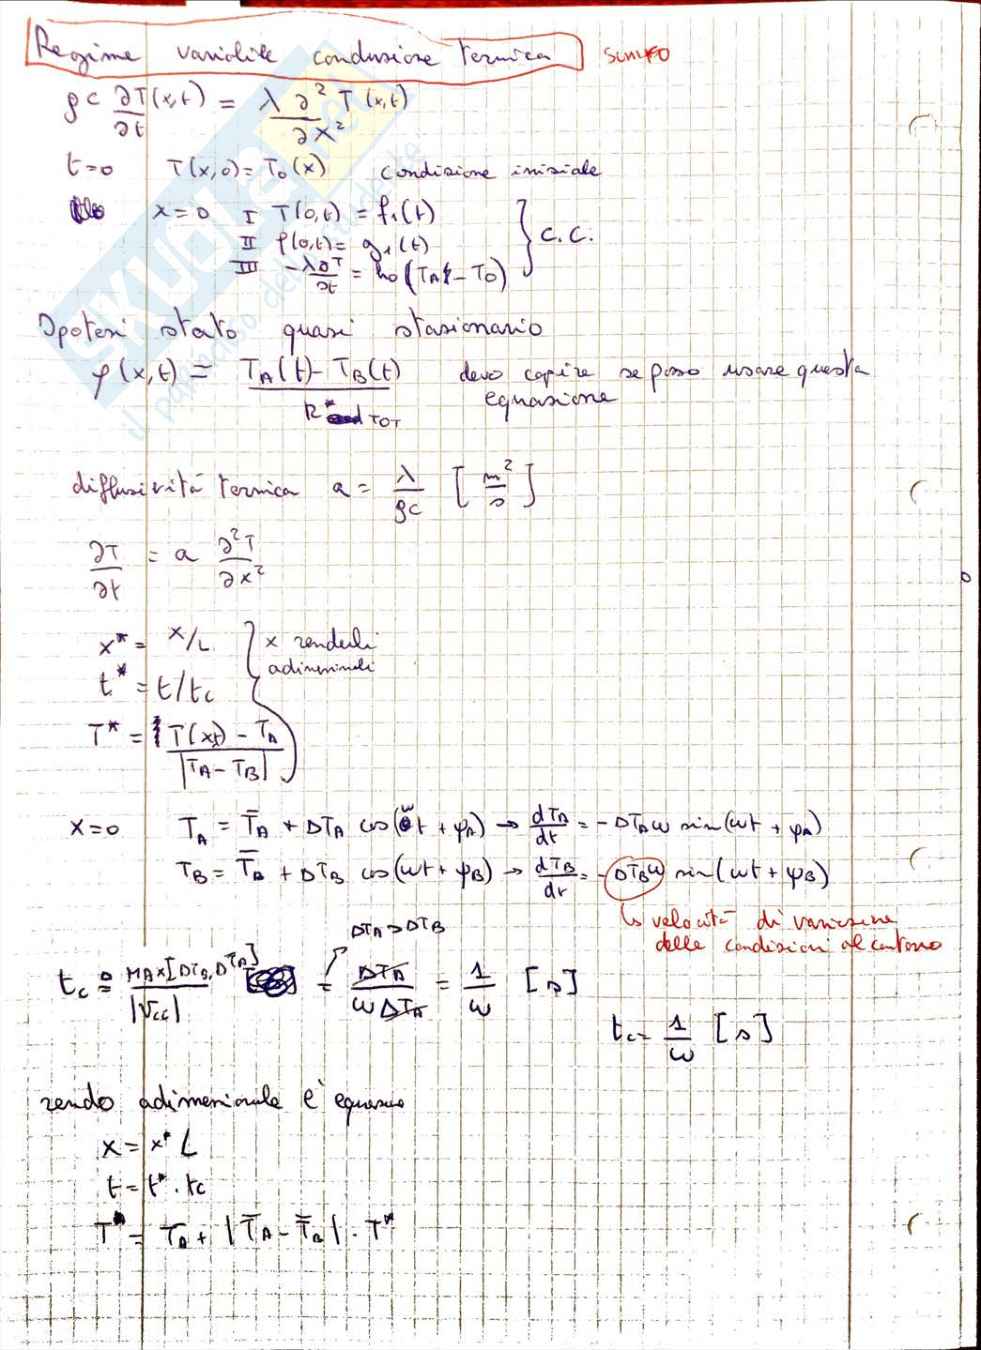 Regime variabile conduzione termica
ρc ∂T(x,t)/∂t = λ ∂²T(x,t)/∂x²
t=0 T(x,0)=T₀(x) condizione iniziale
x=0 I T(0,t) = f₁(t)
II φ(0,t) = g₁(t) } C.C.
III -λ∂T/∂t = h₀(TA - T0)
Ipotesi stato quasi stazionario
φ(x,t) = (TA(t) - TB(t))/R*TOT devo capire se posso usare questa
equazione
diffusività termica a = λ/ρc [m²/s]
∂T/∂t = a ∂²T/∂x²
x* = x/L } x renderli
adimensionali
t* = t/tc
T* = (T(x,t) - TA)/|TA - TB|
x=0 TA = T̄A + DTA cos(ωt + φA) → dTA/dt = -DTAω sin(ωt + φA)
TB = T̄B + DTB cos(ωt + φB) → dTB/dt = -DTBω sin(ωt + φB)
↳ velocità di variazione
delle condizioni al contorno
DTA > DTB
tc ≅ MAX[DTB, DTA]/|Vcc| = DTA/(ω ΔTA) = 1/ω [s]
tc = 1/ω [s]
rendo adimensionale l'equazione
x = x* L
t = t* · tc
T* = TA + |T̄A - T̄B| · T*
SKUOLA.net
il paradiso dello studente